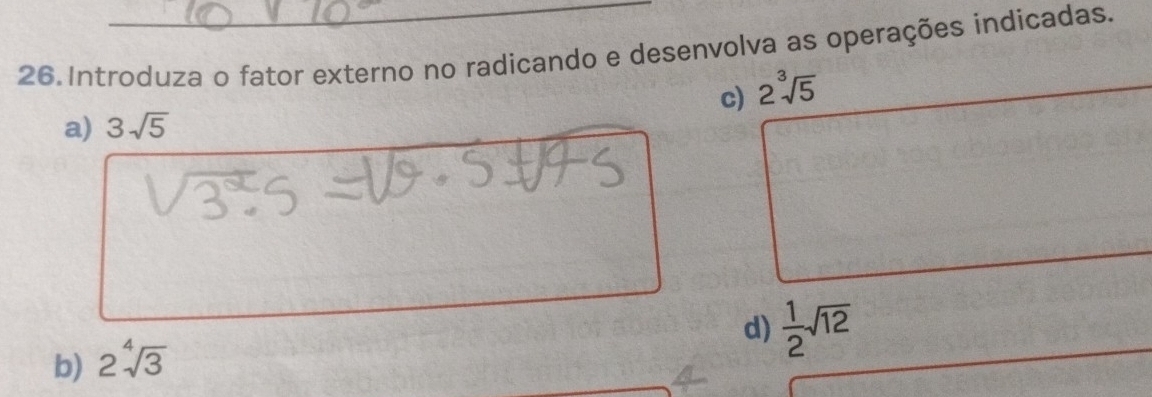 10 √ 10
26. Introduza o fator externo no radicando e desenvolva as operações indicadas.
a) 3√5
√3².5 = √9.5 = √45
c) 2∛5
b) 2∜3
4
d) 1/2 √12